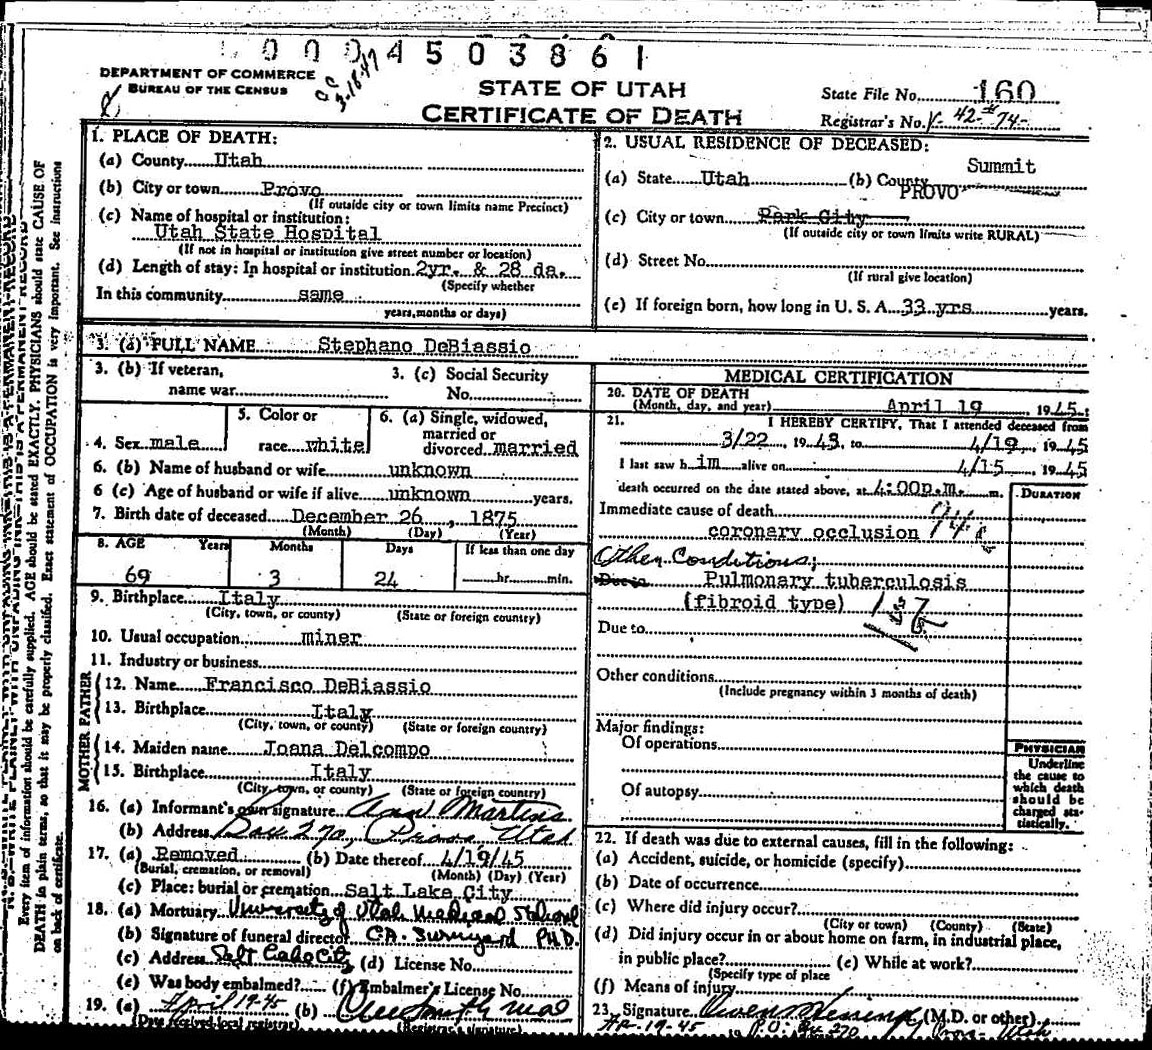 0004503861
DEPARTMENT OF COMMERCE
BUREAU OF THE CENSUS
3-18-47
STATE OF UTAH
CERTIFICATE OF DEATH
State File No. 160
Registrar's No. 42- 74-
1. PLACE OF DEATH:
(a) County Utah
(b) City or town Provo
(If outside city or town limits name Precinct)
(c) Name of hospital or institution:
Utah State Hospital
(If not in hospital or institution give street number or location)
(d) Length of stay: In hospital or institution 2yr. & 28 da.
(Specify whether
In this community same
years, months or days)
2. USUAL RESIDENCE OF DECEASED:
Summit
(a) State Utah (b) County
PROVO
(c) City or town Park City
(If outside city or town limits write RURAL)
(d) Street No.
(If rural give location)
(e) If foreign born, how long in U. S. A. 33 yrs years.
3. (a) FULL NAME Stephano DeBiassio
3. (b) If veteran,
name war
3. (c) Social Security
No.
4. Sex male
5. Color or
race white
6. (a) Single, widowed,
married or
divorced married
6. (b) Name of husband or wife unknown
6 (c) Age of husband or wife if alive unknown years.
7. Birth date of deceased December 26, 1875
(Month) (Day) (Year)
8. AGE Years Months Days If less than one day
69 3 24 hr. min.
9. Birthplace Italy
(City, town, or county) (State or foreign country)
10. Usual occupation miner
11. Industry or business
FATHER
12. Name Francisco DeBiassio
13. Birthplace Italy
(City, town, or county) (State or foreign country)
MOTHER
14. Maiden name Joana Delcompo
15. Birthplace Italy
(City, town, or county) (State or foreign country)
16. (a) Informant's own signature Martins
(b) Address Box 270, Provo Utah
17. (a) Removed (b) Date thereof 4/19/45
(Burial, cremation, or removal) (Month) (Day) (Year)
(c) Place: burial or cremation Salt Lake City
18. (a) Mortuary University of Utah Medical School
(b) Signature of funeral director C.A. PH.D.
(c) Address Salt Lake City (d) License No.
(e) Was body embalmed? (f) Embalmer's License No.
19. (a) April 19-45 (b)
(Date received local registrar) (Registrar's signature)
MEDICAL CERTIFICATION
20. DATE OF DEATH
(Month, day, and year) April 19, 1945
21. I HEREBY CERTIFY, That I attended deceased from
3/22, 1943, to 4/19, 1945
I last saw him alive on 4/15, 1945
death occurred on the date stated above, at 4:00p.m. m.
DURATION
Immediate cause of death
coronary occlusion
Other Conditions;
Due to Pulmonary tuberculosis
(fibroid type)
Due to
Other conditions
(Include pregnancy within 3 months of death)
Major findings:
Of operations
Of autopsy
PHYSICIAN
Underline
the cause to
which death
should be
charged sta-
tistically.
22. If death was due to external causes, fill in the following:
(a) Accident, suicide, or homicide (specify)
(b) Date of occurrence
(c) Where did injury occur?
(City or town) (County) (State)
(d) Did injury occur in or about home on farm, in industrial place,
in public place? (e) While at work?
(Specify type of place
(f) Means of injury
23. Signature Owen (M.D. or other)
Ap-19-45 P.O. Bx 270 Provo- Utah
Every item of information should be carefully supplied. AGE should be stated EXACTLY. PHYSICIANS should state CAUSE OF
DEATH in plain terms, so that it may be properly classified. Exact statement of OCCUPATION is very important. See instructions
on back of certificate.